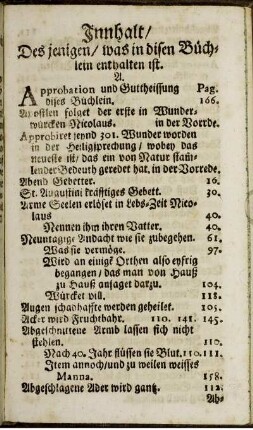 Innhalt/
Des jenigen/ was in disen Büch-
lein enthalten ist.
A.
Approbation und Guttheissung Pag.
dises Büchlein. 166.
Apostlen folget der erste in Wunder-
würcken Nicolaus. in der Vorrde.
Approbiret seynd 301. Wunder worden
in der Heiligsprechung / wobey das
neueste ist/ das ein von Natur stam-
lender Bedeuth geredet hat. in der Vorrede.
Abend Gebetter. 16.
St. Augustini kräfftiges Gebett. 30.
Arme Seelen erlöset in Lebs-Zeit Nico-
laus 40.
Nennen ihn ihren Vatter. 40.
Neuntägige Andacht wie sie zubegehen. 61.
Was sie vermöge. 97.
Wird an einigē Orthen also eyfrig
begangen/ das man von Hauß
zu Hauß ansaget darzu. 104.
Würcket vill. 118.
Augen schadhaffte werden geheilet. 105.
Acker wird Fruchtbahr. 110. 141. 145.
Abgeschnittene Armb lassen sich nicht
stehlen. 110.
Nach 40. Jahr flüssen sie Blut. 110. 111.
Item annoch/und zu weilen weisses
Manna. 158.
Abgeschlagene Ader wird gantz. 112.
Ab-